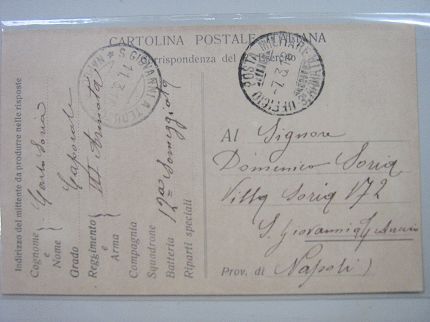 CARTOLINA POSTALE ITALIANA
Corrispondenza del R. Esercito
S. GIOVANNI A TEDUCCIO
NAPOLI
UFFICIO POSTA MILITARE
-7.3.18
Al Signore
Domenico Soria
Villa Soria 172
S. Giovanni a Teduccio
Prov. di Napoli)
Indirizzo del mittente da produrre nelle risposte
Cognome e Nome Carlo Soria
Grado Caporale
Reggimento e Arma III Armata
Compagnia
Squadrone
Batteria 12a Someggiata
Riparti speciali